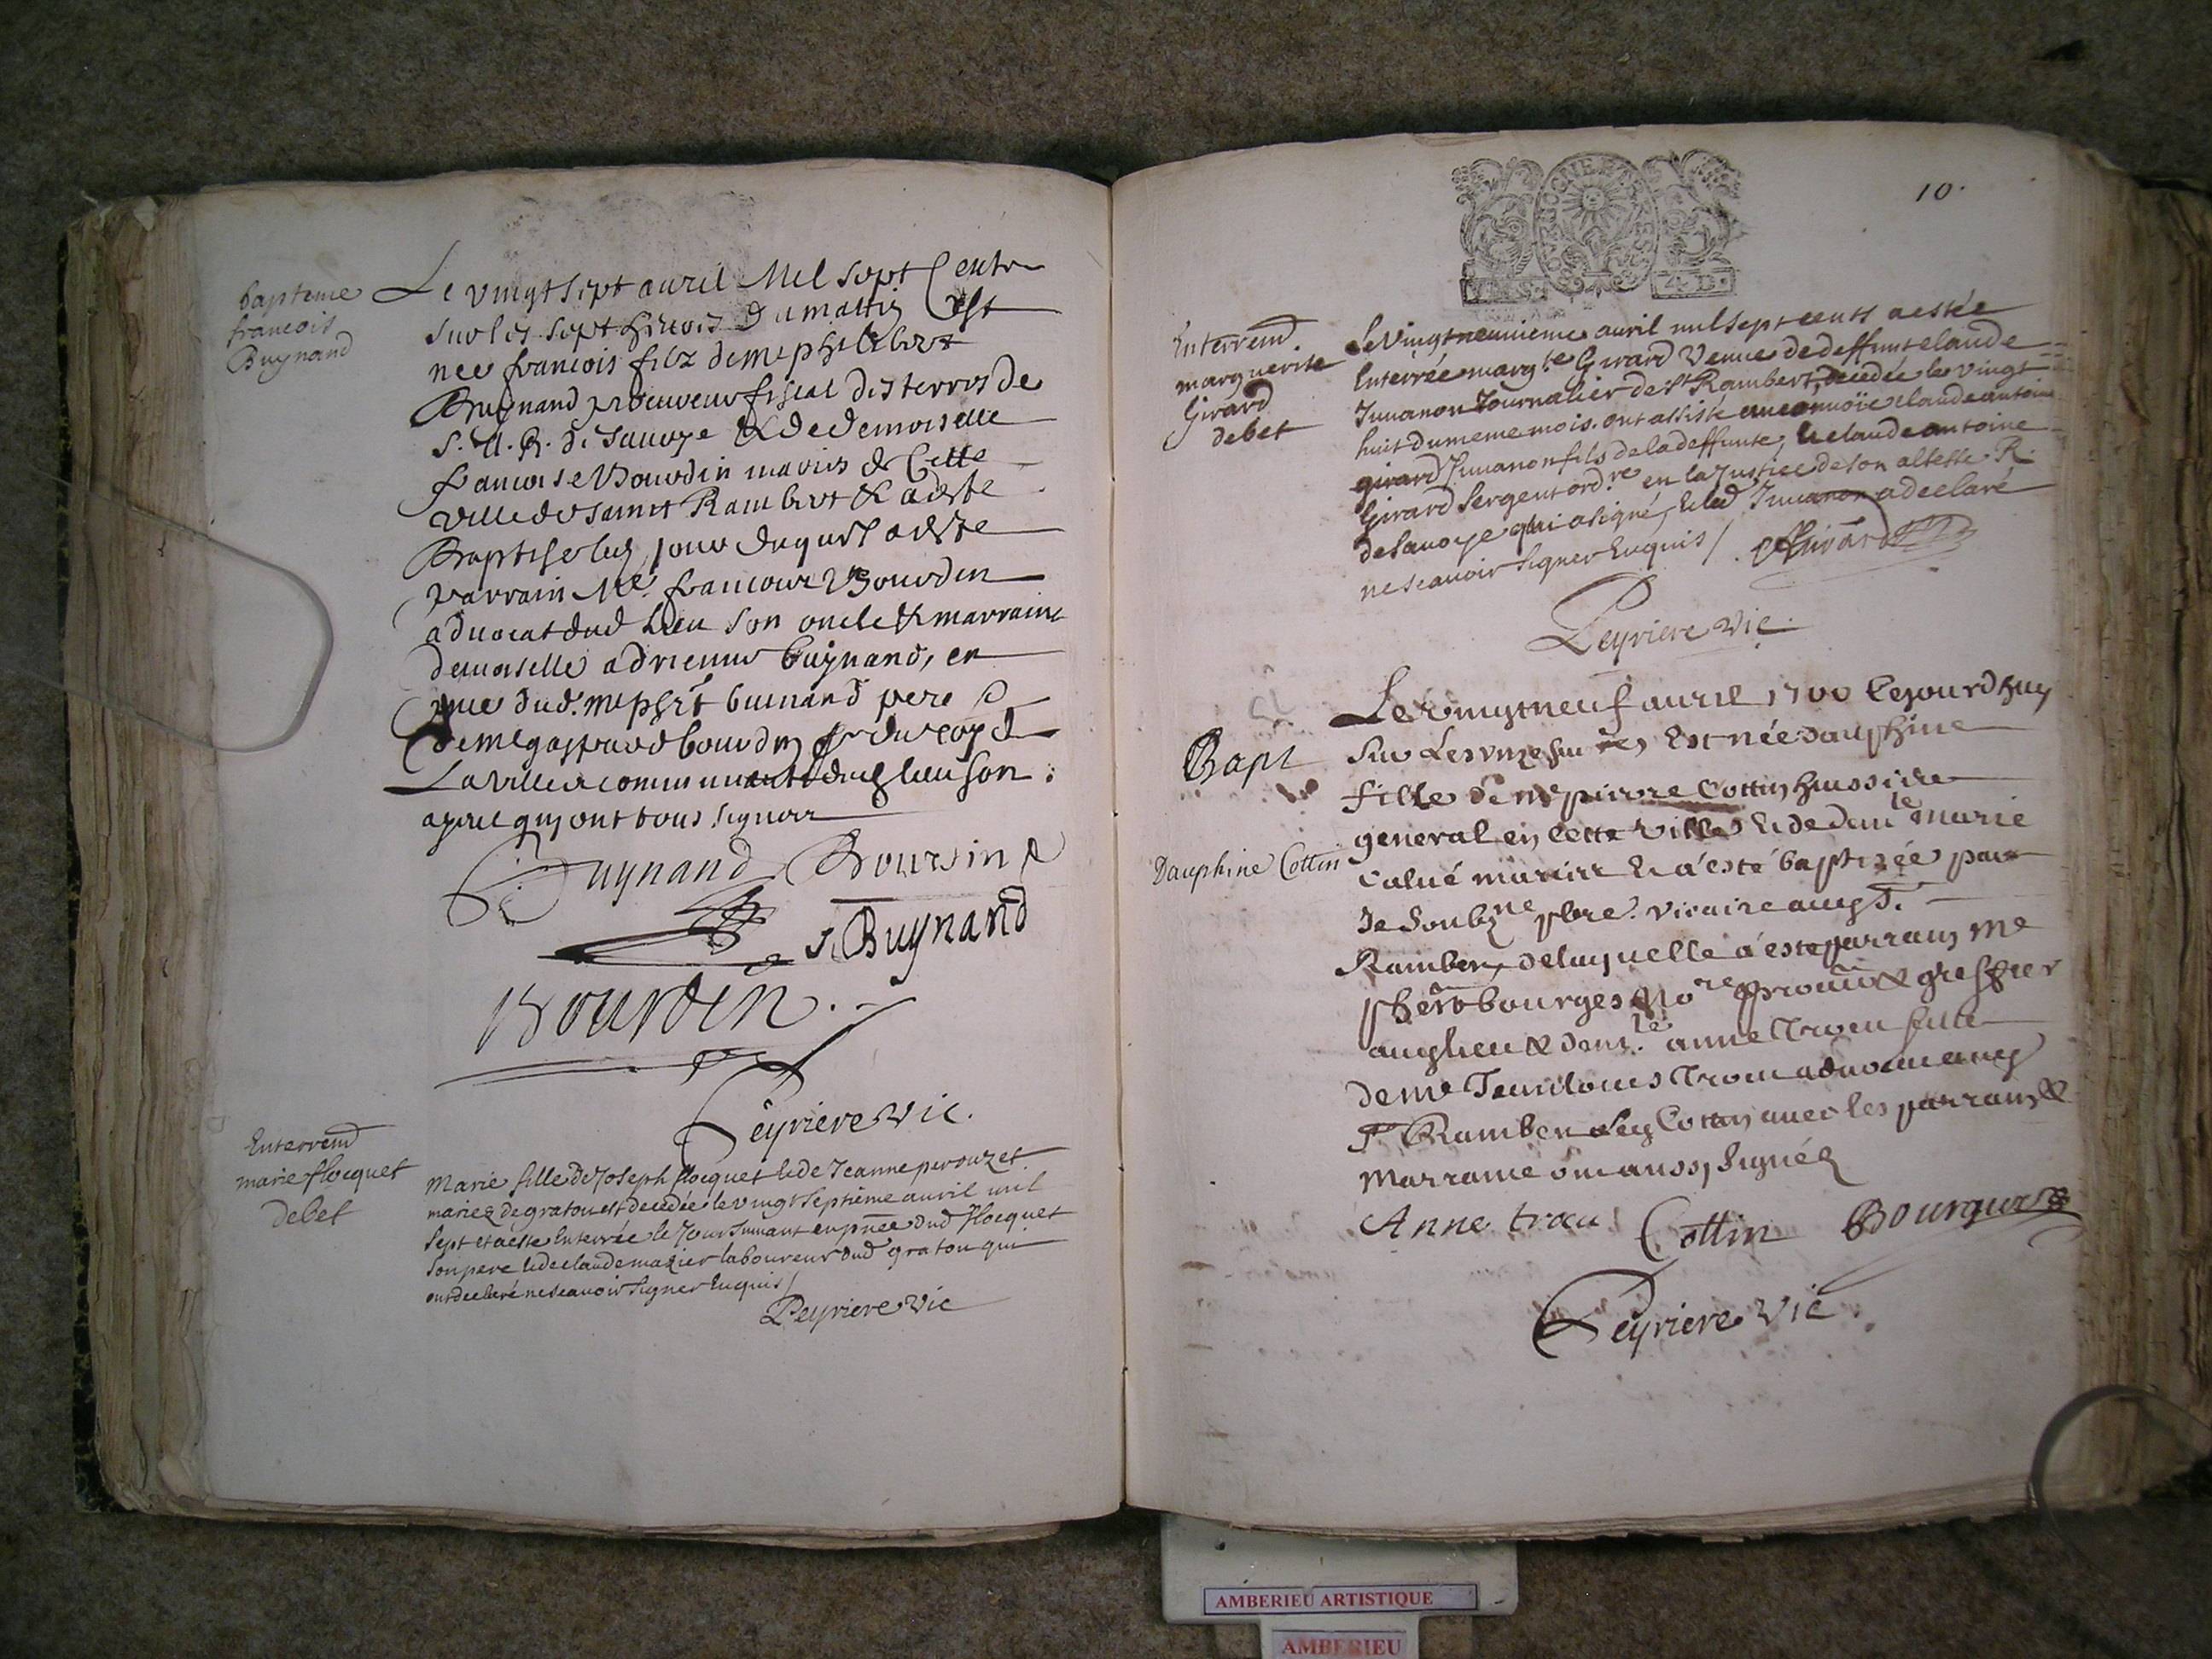 bapteme
francois
Buynand
Le vingt sept avril Mil sept Cents
sur les sept heures du mattin est
nee francois filz de me philibert
Buynand procureur fiscal des terres de
S. A. R. de Savoye & de demoiselle
francoise Bourdin mariés de Cette
ville de saint Rambert & a esté
Baptisé led jour duquel a esté
parrain Me francois Bourdin
advocat dud lieu son oncle & marraine
demoiselle adrienne buynand, en
dud. me phirt buinand pere
de me gaspard bourdin
La ville & communauté dud lieu son
ayeul qui ont tous signez
Buynand Boursin
A Buynand
Bourdin
Peyriere vic.
Enterremt
marie flocquet
debet
Marie fille de Joseph flocquet & de Jeanne perouzet
mariez de graton est decedée le vingt septième avril mil
sept et a esté Enterrée le Jour suivant en pnce dud flocquet
son pere & de claude mazier laboureur dud graton qui
ont declaré ne scavoir signer Enquis /
Peyriere vic
10.
Enterremt
marguerite
Girard
debet
Le vingt neuvieme avril mil sept cents a estée
Enterrée margte Girard veuve de deffunt claude
Juvanon Journalier de st Rambert, decedée le vingt
huit du meme mois. ont assisté au convoïe claude antoine
girard Juvanon fils de la deffunte, & claude antoine
Girard sergent ordre en la Justice de son altesse R.
de Savoye qui a signé, & led Juvanon a declaré
ne scavoir signer Enquis / Girard
Peyriere vic.
Bapt
Dauphine Cottin
Le vingt neuf avril 1700 Cejourdhuy
Sur Les unze heures Est née dauphine
fille de me pierre Cottin huissier
general en cette ville & de damle marie
mariez & a esté baptizée par
Je soubzne pbre vicaire aud St.
Rambert, de laquelle a esté parrain me
bourges Nore & greffier
aud lieu & damle anne Trocu fille
de me Jean louis Trocu advocat aud
St Rambert Led Cottin avec les parrain &
Marraine ont aussy signéz
Anne trocu Cottin Bourges
Peyriere vic.
AMBERIEU ARTISTIQUE
AMBERIEU